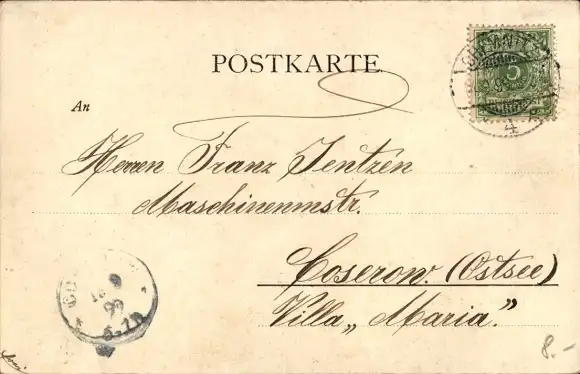 POSTKARTE
CHEMNITZ
4
5
An
Herren Franz Jentzen
Maschinenmstr.
Coserow. (Ostsee)
Villa „Maria.”
9
99
8.-